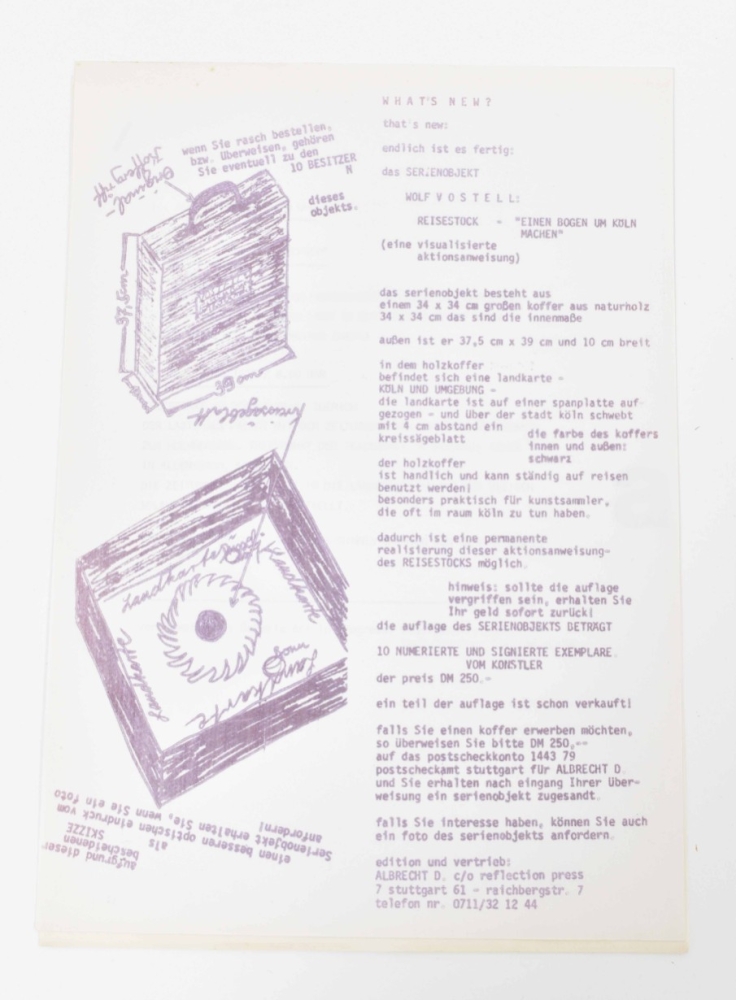 WHAT'S NEW?
that's new:
endlich ist es fertig:
das SERIENOBJEKT
WOLF VOSTELL:
REISESTOCK - "EINEN BOGEN UM KÖLN
MACHEN"
(eine visualisierte
aktionsanweisung)
das serienobjekt besteht aus
einem 34 x 34 cm großen koffer aus naturholz
34 x 34 cm das sind die innenmaße
außen ist er 37,5 cm x 39 cm und 10 cm breit
in dem holzkoffer
befindet sich eine landkarte -
KÖLN UND UMGEBUNG -
die landkarte ist auf einer spanplatte auf
gezogen - und über der stadt köln schwebt
mit 4 cm abstand ein
kreissägeblatt
die farbe des koffers
innen und außen:
schwarz
der holzkoffer
ist handlich und kann ständig auf reisen
benutzt werden!
besonders praktisch für kunstsammler,
die oft im raum köln zu tun haben.
dadurch ist eine permanente
realisierung dieser aktionsanweisung-
des REISESTOCKS möglich.
hinweis: sollte die auflage
vergriffen sein, erhalten Sie
Ihr geld sofort zurück!
die auflage des SERIENOBJEKTS BETRÄGT
10 NUMERIERTE UND SIGNIERTE EXEMPLARE.
VOM KÜNSTLER
der preis DM 250.-
ein teil der auflage ist schon verkauft!
falls Sie einen koffer erwerben möchten,
so überweisen Sie bitte DM 250,--
auf das postscheckkonto 1443 79
postscheckamt stuttgart für ALBRECHT D.
und Sie erhalten nach eingang Ihrer Über-
weisung ein serienobjekt zugesandt.
falls Sie interesse haben, können Sie auch
ein foto des serienobjekts anfordern.
edition und vertrieb:
ALBRECHT D. c/o reflection press
7 stuttgart 61 - raichbergstr. 7
telefon nr. 0711/32 12 44
wenn Sie rasch bestellen,
bzw. überweisen, gehören
Sie eventuell zu den
10 BESITZER
N
dieses
objekts.
Original-
Koffergriff
37,5cm
39 cm
Kreissägeblatt
Landkarte
Landkarte
Landkarte
Landkarte
aufgrund dieser
bescheidenen
SKIZZE
als
einen besseren optischen eindruck vom
Serienobjekt erhalten Sie, wenn Sie ein foto
anfordern!